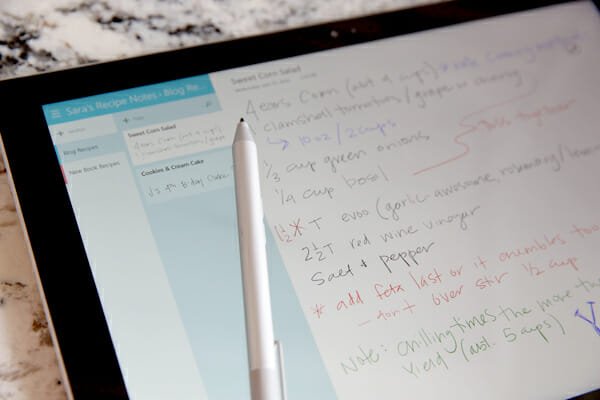 Sara's Recipe Notes › Blog Re...
+ Section
Blog Recipes
New Book Recipes
+ Page
Sweet Corn Salad
Cookies & Cream Cake
J's 4th B-day Cake
Sweet Corn Salad
4 ears corn (abt 4 cups) *
clamshell tomatoes / grape or cherry
→ 10 oz / 2 cups
1/3 cup green onions
Toss together
1/4 cup basil
1 1/2 * T evoo (garlic-awesome, rosemary/lemon
2 1/2 T red wine vinegar
Salt + pepper
* add feta last or it crumbles too
- don't over stir 1/2 cup
Note: chilling times the more
Yield (abt. 5 cups)